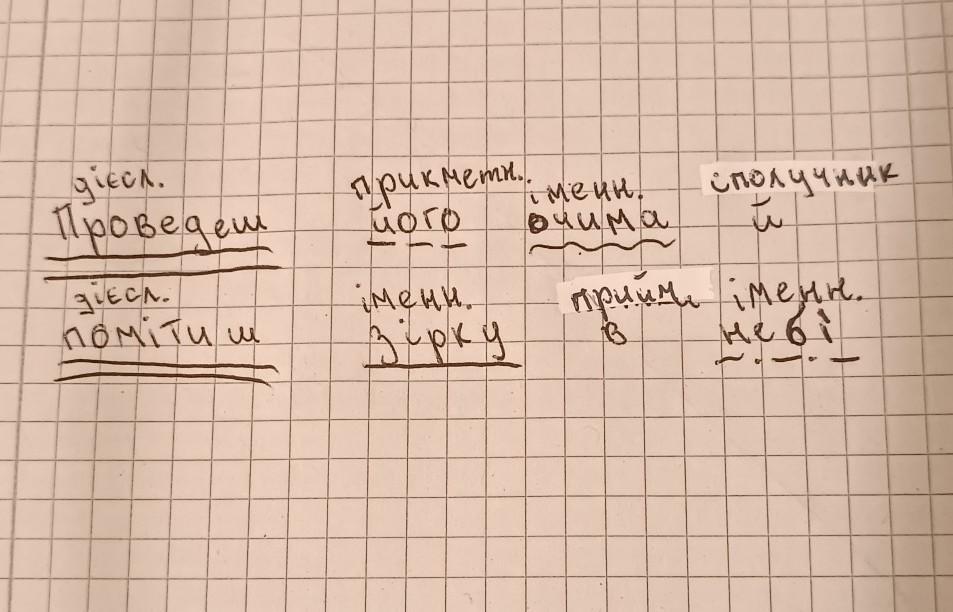 дієсл. прикметн. іменн. сполучник
Проведеш його очима й
дієсл. іменн. прийм. іменн.
помітиш зірку в небі